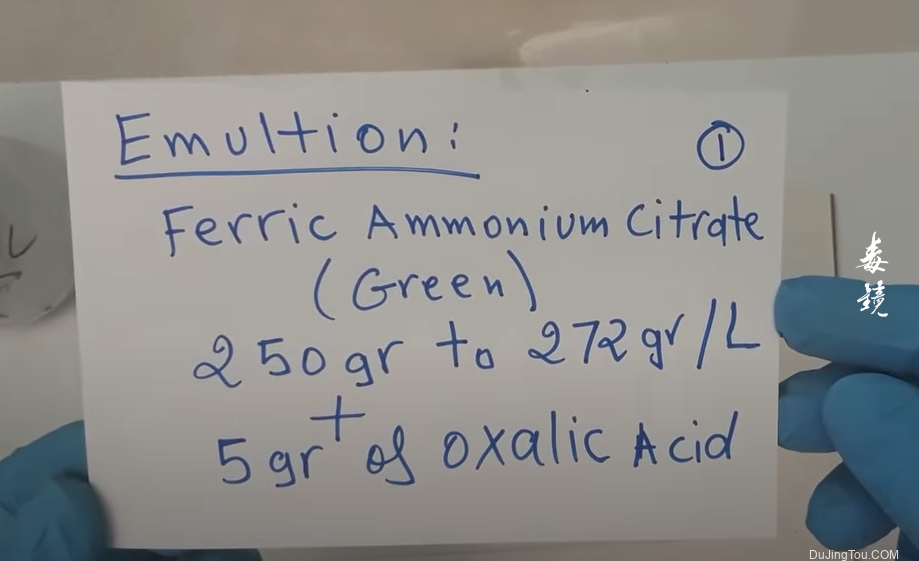 Emultion:
①
Ferric Ammonium Citrate
(Green)
250gr to 272gr/L
+
5gr of oxalic Acid
毒镜
DuJingTou.COM